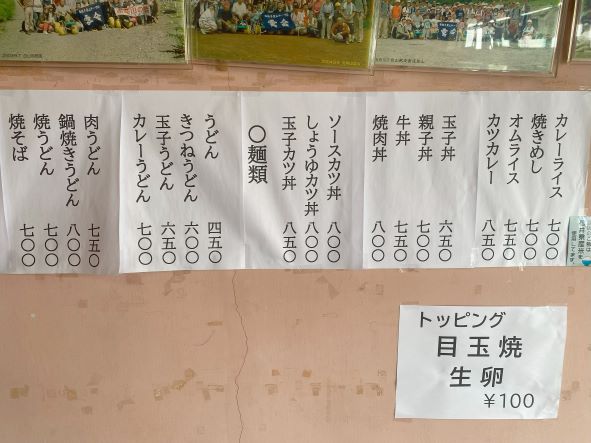 カレーライス 七〇〇
焼きめし 七〇〇
オムライス 七五〇
カツカレー 八五〇
玉子丼 六五〇
親子丼 七〇〇
牛丼 七五〇
焼肉丼 八〇〇
ソースカツ丼 八〇〇
しょうゆカツ丼 八〇〇
玉子カツ丼 八五〇
〇麺類
うどん 四五〇
きつねうどん 六〇〇
玉子うどん 六五〇
カレーうどん 七〇〇
肉うどん 七五〇
鍋焼きうどん 八〇〇
焼うどん 七〇〇
焼そば 七〇〇
トッピング
目玉焼
生卵
￥100